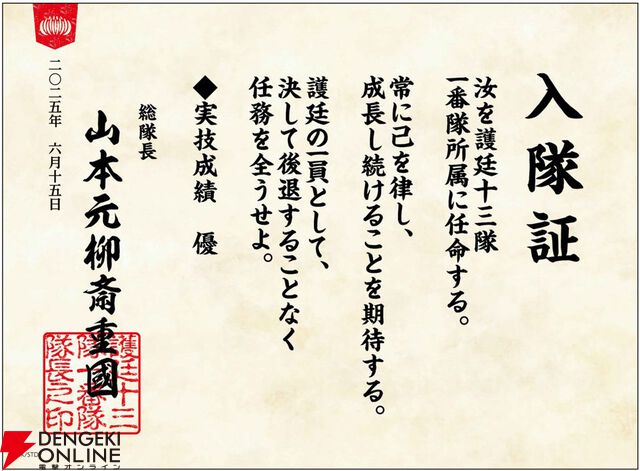 入隊証
汝を護廷十三隊
一番隊所属に任命する。
常に己を律し、
成長し続けることを期待する。
護廷の一員として、
決して後退することなく
任務を全うせよ。
◆実技成績　優
総隊長
山本元柳斎重國
二〇二五年　六月十五日
護廷十三
隊一番隊
隊長之印
DENGEKI
ONLINE
電撃オンライン